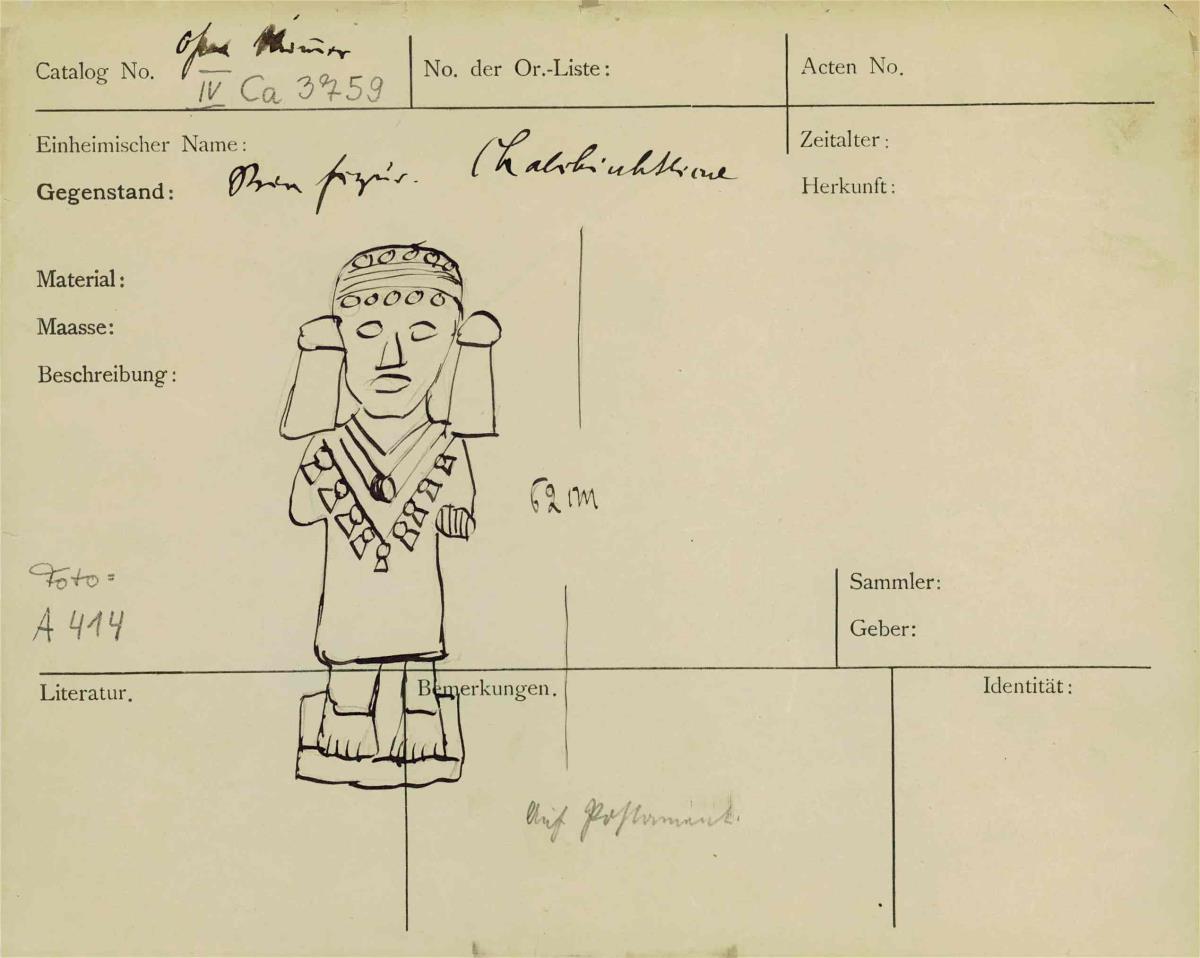 Catalog No. ohne
IV Ca 3759
No. der Or.-Liste:
Acten No.
Einheimischer Name:
Gegenstand: Steinfigur. Chalchiuhtlicue
Zeitalter:
Herkunft:
Material:
Maasse:
Beschreibung:
Foto =
A 414
Sammler:
Geber:
Literatur.
Bemerkungen.
Identität:
Auf Postament.